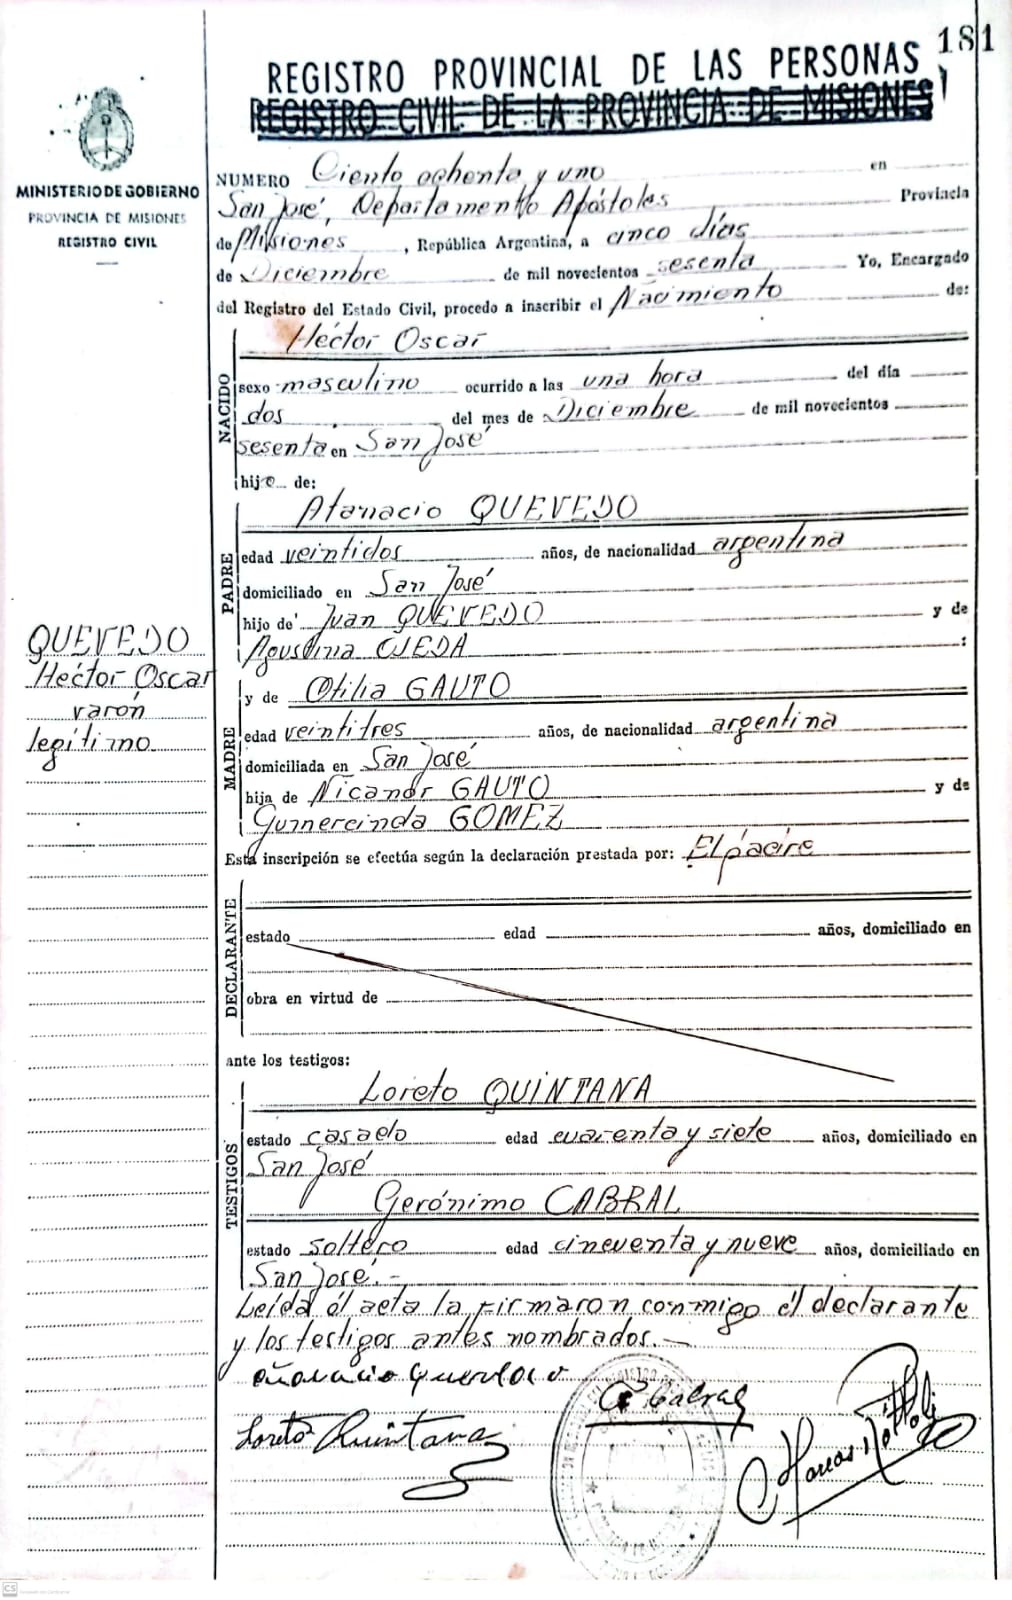 181
REGISTRO PROVINCIAL DE LAS PERSONAS
REGISTRO CIVIL DE LA PROVINCIA DE MISIONES
MINISTERIO DE GOBIERNO
PROVINCIA DE MISIONES
REGISTRO CIVIL
NUMERO Ciento ochenta y uno en
San José, Departamento Apóstoles Provincia
de Misiones, República Argentina, a cinco días
de Diciembre de mil novecientos sesenta Yo, Encargado
del Registro del Estado Civil, procedo a inscribir el Nacimiento de:
NACIDO
Héctor Oscar
sexo masculino ocurrido a las una hora del día
dos del mes de Diciembre de mil novecientos
sesenta en San José
hijo de:
PADRE
Atanacio QUEVEDO
edad veintidos años, de nacionalidad argentina
domiciliado en San José
hijo de Juan QUEVEDO y de
Agustina OJEDA :
QUEVEDO
Héctor Oscar
varón
legítimo
MADRE
y de Otilia GAUTO
edad veintitres años, de nacionalidad argentina
domiciliada en San José
hija de Nicanor GAUTO y de
Gumercinda GOMEZ
Esta inscripción se efectúa según la declaración prestada por: El padre
DECLARANTE
estado edad años, domiciliado en
obra en virtud de
ante los testigos:
TESTIGOS
Loreto QUINTANA
estado casado edad cuarenta y siete años, domiciliado en
San José
Gerónimo CABRAL
estado soltero edad cincuenta y nueve años, domiciliado en
San José.-
Leída el acta la firmaron conmigo el declarante
y los testigos antes nombrados.-
Cabral
Loreto Quintana
CS